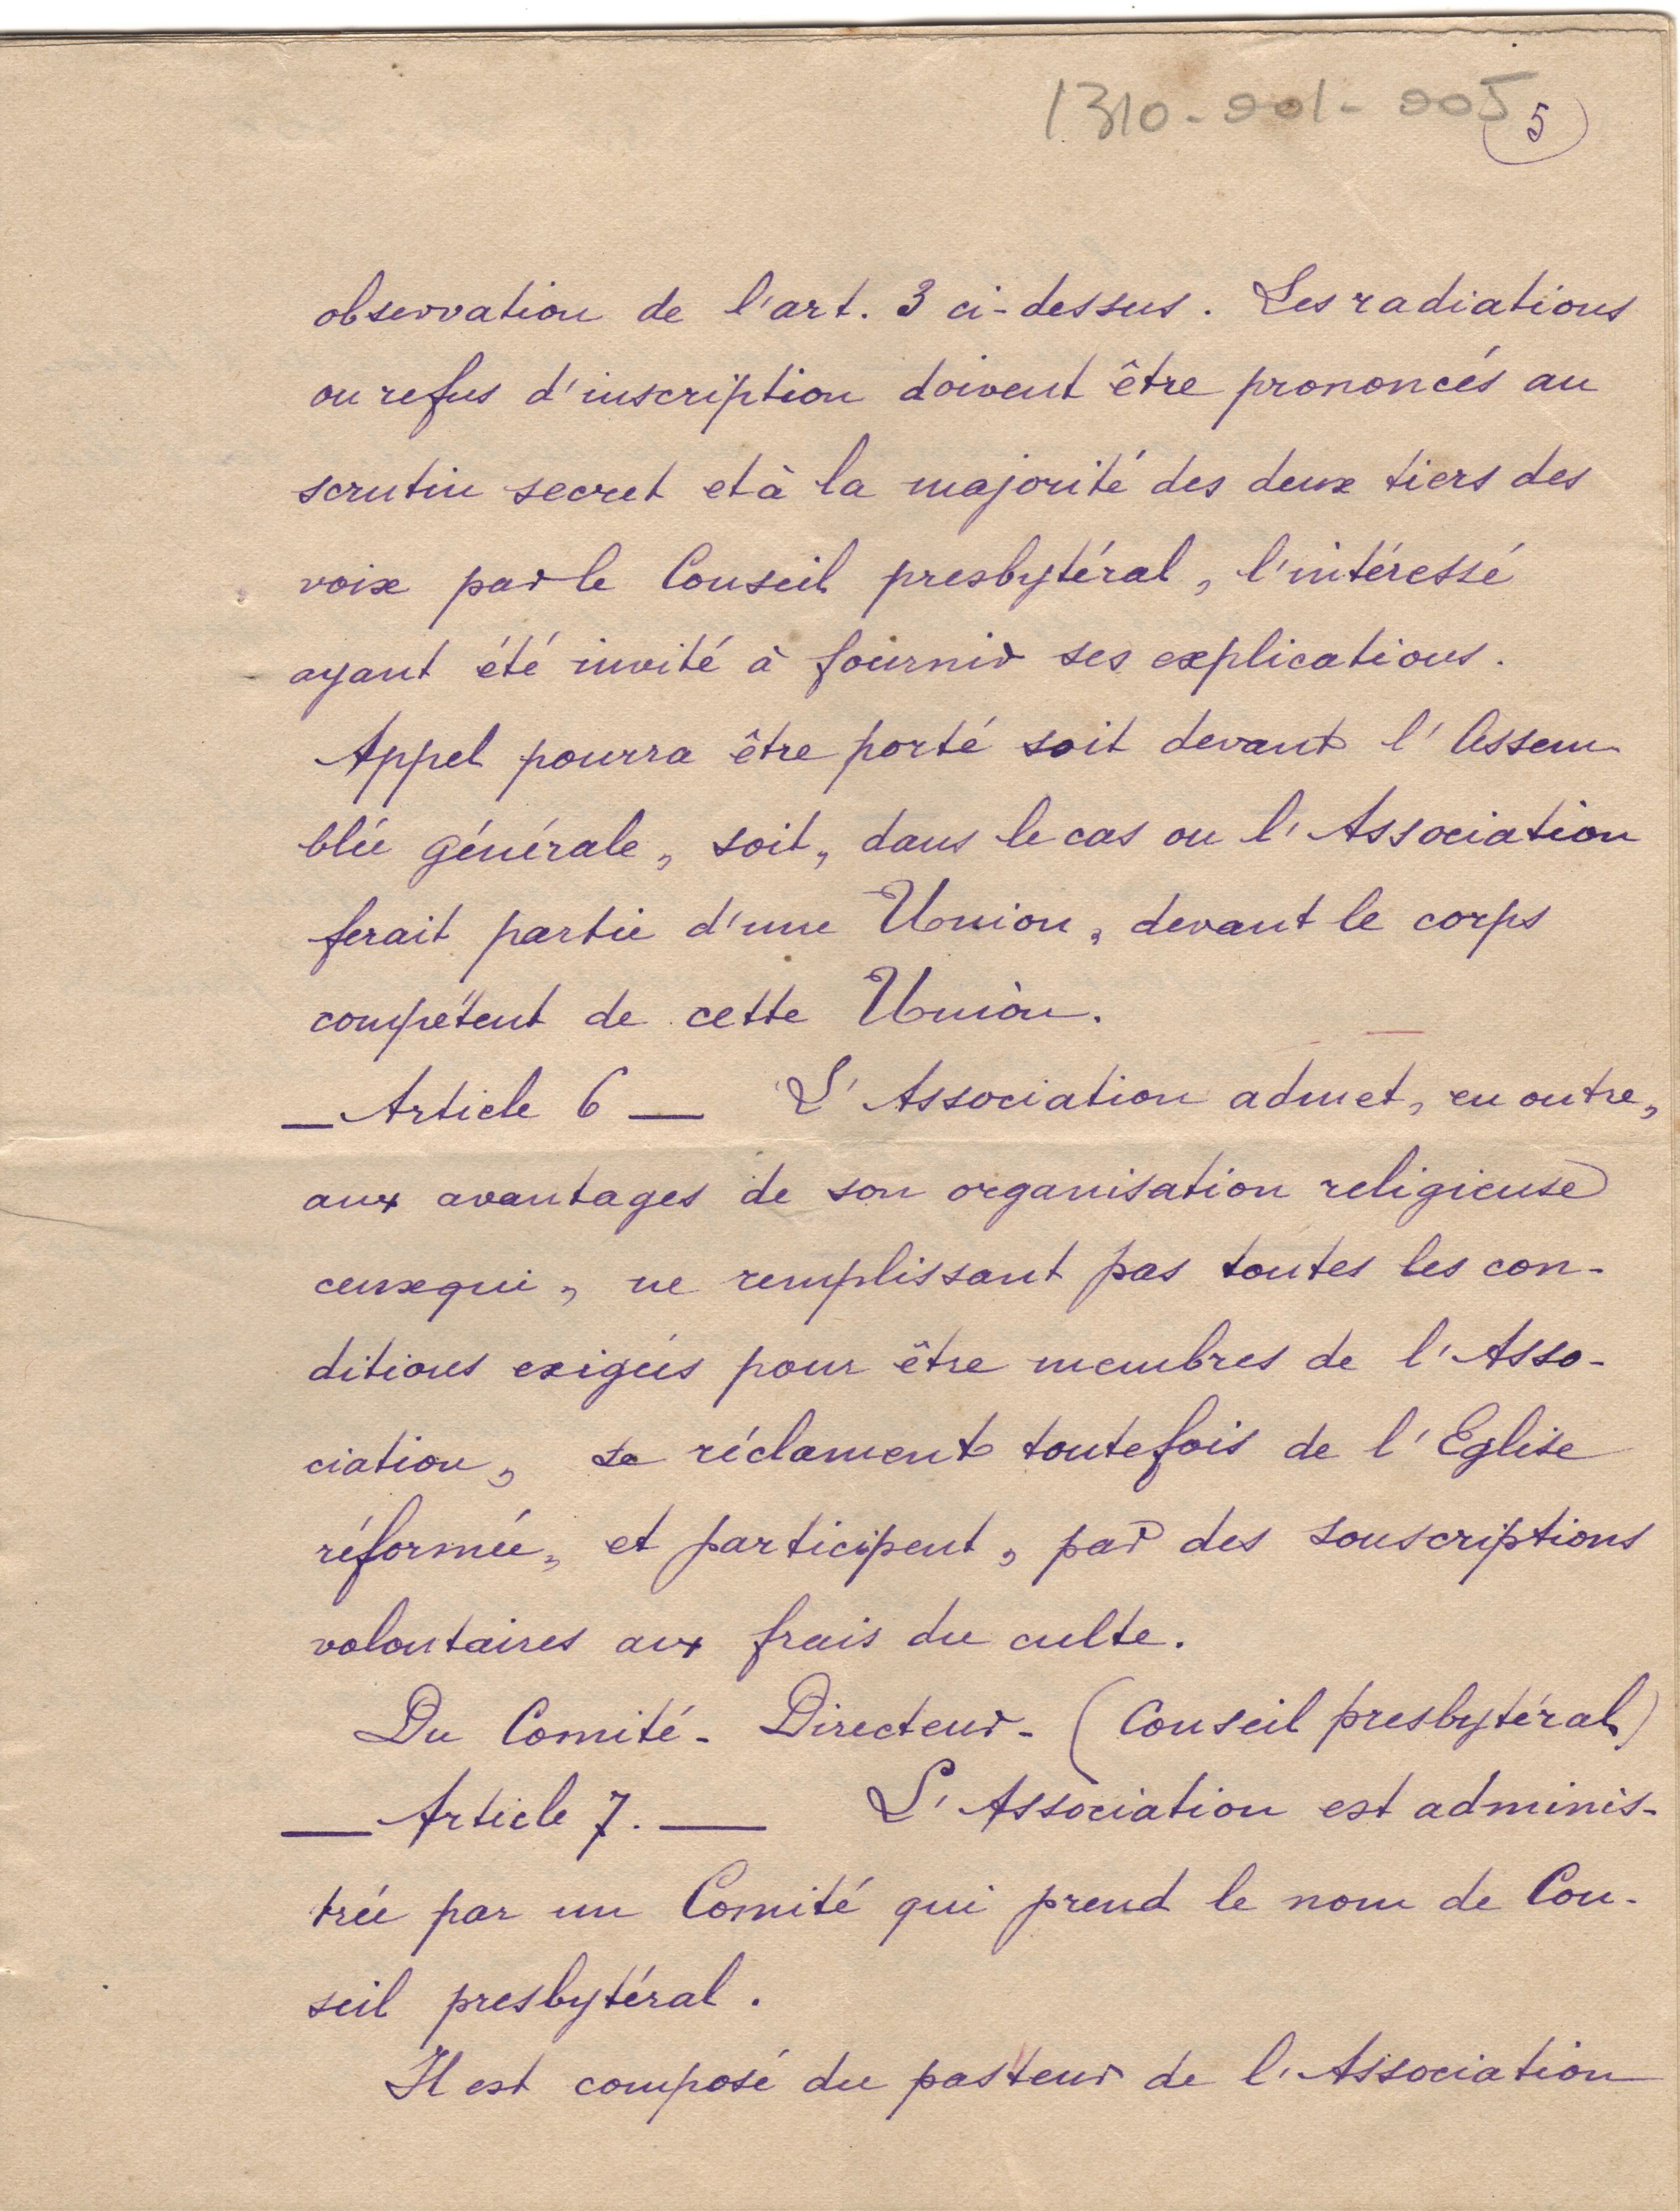 1310-001-005
5
observation de l'art. 3 ci-dessus. Les radiations
ou refus d'inscription doivent être prononcés au
scrutin secret et à la majorité des deux tiers des
voix par le Conseil presbytéral, l'intéressé
ayant été invité à fournir ses explications.
Appel pourra être porté soit devant l'Assem-
blée générale, soit, dans le cas ou l'Association
ferait partie d'une Union, devant le corps
compétent de cette Union.
— Article 6 — L'Association admet, en outre,
aux avantages de son organisation religieuse
ceux qui, ne remplissant pas toutes les con-
ditions exigées pour être membres de l'Asso-
ciation, se réclament toutefois de l'Eglise
réformée, et participent, par des souscriptions
volontaires aux frais du culte.
Du Comité-Directeur- (Conseil presbytéral)
— Article 7. — L'Association est adminis-
trée par un Comité qui prend le nom de Con-
seil presbytéral.
Il est composé du pasteur de l'Association